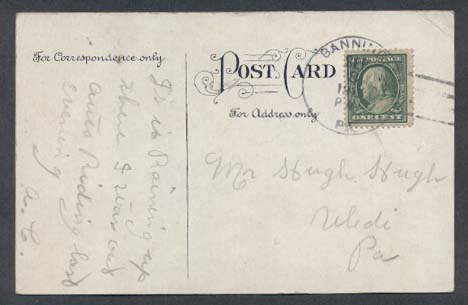 For Correspondence only
POST CARD
For Address only
BANNIN
PA
U.S. POSTAGE
ONE CENT
It is Raining up
there I was out
auto Riding last
Evening
A. C.
Mr Hugh Hugh
Uledi
Pa